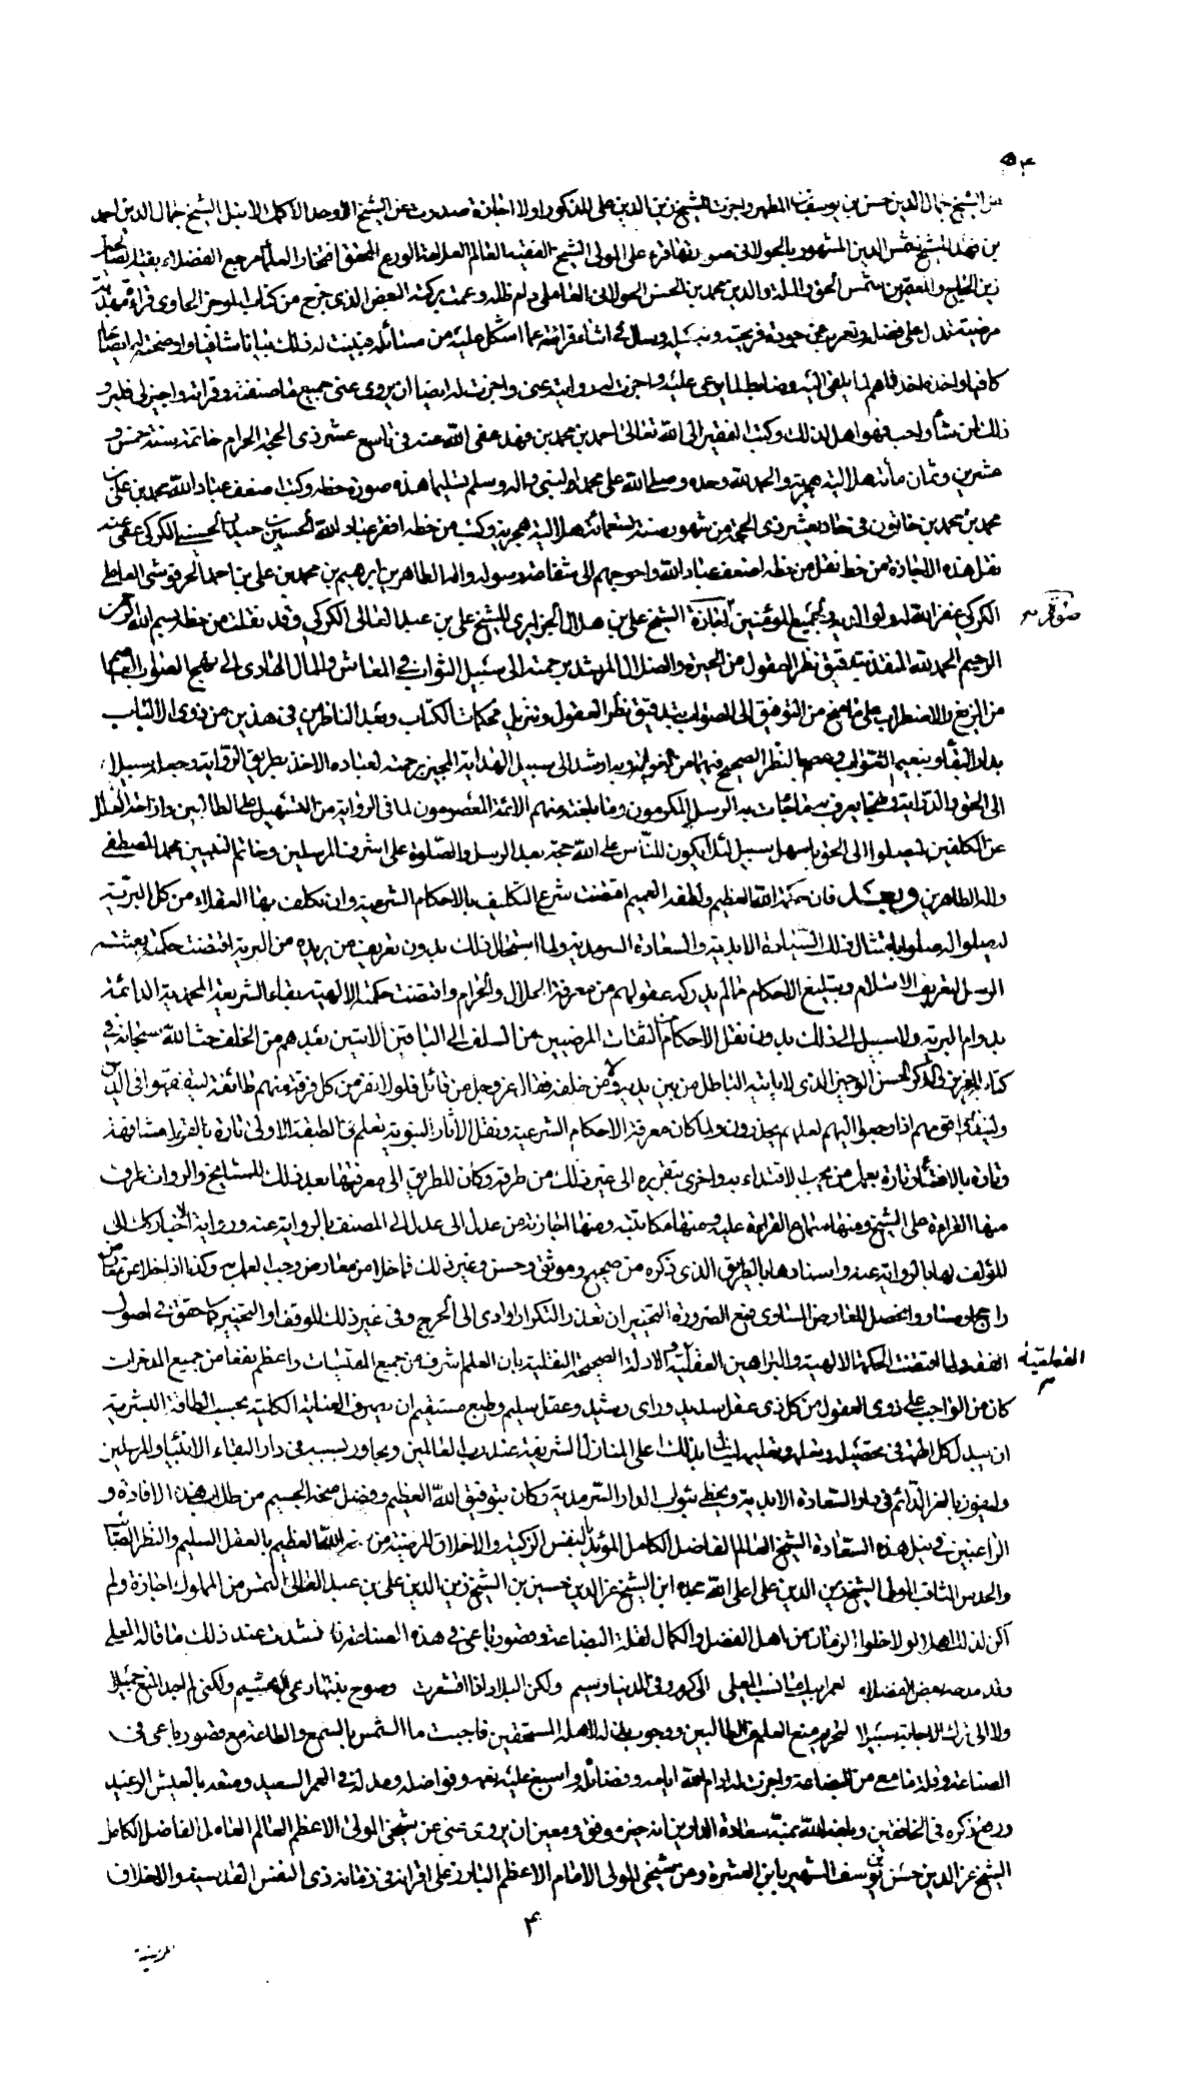 ٥٤
من الشيخ جمال الدين حسن بن يوسف بن المطهر واجزت للشيخ زين الدين على المذكور اولا اجازة صدرت عن الشيخ الاوحد الاكمل الانبل الشيخ جمال الدين احمد
بن فهد للشيخ شمس الدين المشهور بالحولانى صورتها قرء على المولى الشيخ الفقيه العالم العلامة الورع المحقق افتخار العلماء مرجع الفضلاء بقية الصالحين
زين الحاج والمعتمرين شمس الحق والملة والدين محمد بن الحسن الحولانى العاملى دام ظله وعمت بركته البعض الذى خرج من كتاب الموجز الحاوى قراءة مهذبة
مرضية تدل على فضله وتعرب عن جودة قريحته ونبله وسال فى اثناء قرائته عما اشكل عليه من مسائله فبينت له ذلك بيانا شافيا واوضحته له ايضاحا
كافيا واخذه اخذ فاهم لما يلقى اليه وضابط لما يوعى عليه واجزت له روايته عنى واجزت له ايضا ان يروى عنى جميع ما صنفته وقراته واجيز لى فليرو
ذلك لمن شاء واحب فهو اهل لذلك وكتب الفقير الى الله تعالى احمد بن محمد بن فهد عفى الله عنه فى تاسع عشر ذى الحجة الحرام خاتمة سنة خمس و
عشرين وثمان مأئة هلالية هجرية والحمد لله وحده وصلى الله على محمد النبى واله وسلم تسليما هذه صورة خطه وكتب اضعف عباد الله محمد بن على بن
محمد بن محمد بن خاتون فى حادى عشر ذى الحجة من شهور سنة تسعمائة هلالية هجرية وكتب من خطه افقر عباد الله الحسين بن حيدر الحسينى الكركى عفى عنه
نقل هذه الاجازة من خط نقل من خطه اضعف عباد الله واحوجهم الى شفاعة رسوله واله الطاهرين ابرهيم بن محمد بن على بن احمد الحرفوشى العاملى
الكركى غفر الله له ولوالديه ولجميع المؤمنين اجازة الشيخ على بن هلال الجزايرى للشيخ على بن عبد العالى الكركى وقد نقلت من خطه بسم الله الرحمن
الرحيم الحمد لله المنقذ بتدقيق نظر العقول من الحيرة والضلال المرشد برحمته الى سبيل الثواب فى المعاش والمال الهادى الى نهج الصواب العاصم
من الزيغ والاضطراب على ما منح من التوفيق الى الصواب بتدقيق نظر العقول وتنزيل محكمات الكتاب وتعبد الناظرين فى هذين من ذوى الالباب
بدار البقاء وبنعيم الثواب وخصهم بالنظر الصحيح فيهما من وارشد الى سبيل الهداية المجيز برحمته لعباده الاخذ بطريق الرواية وجعله سبيلا
الى الحق والدراية ومنهجا يعرف به ما جائت به الرسل المكرمون وما بلغته منهم الائمة المعصومون لما فى الرواية من التسهيل على الطالبين وازاحة العلل
عن المكلفين ليصلوا الى الحق باسهل سبيل لئلا يكون للناس على الله حجة بعد الرسل والصلوة على اشرف المرسلين وخاتم النبيين محمد المصطفى
واله الطاهرين وبعد فان حكمة الله العظيم ولطفه العميم اقتضت شرع التكليف بالاحكام الشرعية وان تكلف بها العقلاء من كل البرية
ليصلوا بامتثال ذلك السيادة الابدية والسعادة السرمدية ولما استحال ذلك بدون تعريف من يريده من البرية اقتضت حكمته بعثته
الرسل لتعريف الاسلام وتبليغ الاحكام مما لم يدركه عقولهم من معرفة الحلال والحرام واقتضت حكمته الالهية بقاء الشريعة المحمدية الدائمة
بدوام البرية ولا سبيل الى ذلك بدون نقل الاحكام من الثقات المرضيين من السلف الى الباقين الاتين بعدهم من الخلف حث الله سبحانه فى
كتابه العزيز والذكر الحسن الوجيز الذى لا ياتيه الباطل من بين يديه ولا من خلفه فقال عز وجل من قائل فلولا نفر من كل فرقة منهم طائفة ليتفقهوا فى الدين
ولينذروا قومهم اذا رجعوا اليهم لعلهم يحذرون ولما كان معرفة الاحكام الشرعية ونقل الاثار النبوية تعلم فى الطبقة الاولى تارة بالقول مشافهة
وتارة بالافتاء وتارة بعمل من يجب الاقتداء به واخرى بتقريره الى غير ذلك من طرقه وكان الطريق الى معرفتها بعد ذلك للمشايخ والروات طرق
منها القراءة على الشيخ ومنها سماع القراءة عليه ومنها مكاتبته ومنها اجازته من عدل الى عدل الى المصنف بالرواية عنه ورواية الاخبار كذلك الى
المؤلف لها بالرواية عنه واسنادها بالطريق الذى ذكره من صحيح وموثق وحسن وغير ذلك فما خلا من معارض وجب العمل به وكذا اذا خلا عن معارض
راجح او مساو وان حصل المعارض المساوى فمع الضرورة التخيير ان تعذر التكرار او ادى الى الحرج وفى غير ذلك الوقف او التخيير كما حقق فى اصول
الفقه ولما اقتضت الحكمة الالهية والبراهين العقلية والادلة الصحيحة النقلية بان العلم اشرف من جميع المقتنيات واعظم نفعا من جميع المدخرات
كان من الواجب على ذوى العقول من كل ذى عقل سديد وراى رشيد وعقل سليم وطبع مستقيم ان يصرف العناية الكلية بحسب الطاقة البشرية
ان يبذل كل الهمة فى تحصيله وتعلمه وتعليمه لينال بذلك اعلى المنازل الشريفة عند رب العالمين ويجاور بسببه فى دار البقاء الانبياء والمرسلين
وليفوز بالعز الدائم فى دار السعادة الابدية ويحظى بثواب الدار السرمدية وكان بتوفيق الله العظيم وفضل منحه الجسيم من طلاب هذه الافادة و
الراغبين فى نيل هذه السعادة الشيخ العالم الفاضل الكامل المؤيد بالنفس الزكية والاخلاق المرضية من الله العظيم بالعقل السليم والنظر الصائب
والحدس الثاقب المولى الشيخ زين الدين على اعلى الله مجده ابن الشيخ عز الدين حسين بن الشيخ زين الدين على بن عبد العالى التمس من المملوك اجازة ولم
اكن لذلك اهلا لولا خلو الزمان من اهل الفضل والكمال لقلة البضاعة وقصور باعى فى هذه الصناعة فانشدت عند ذلك ما قاله المعلى
وقد مدحه بعض الفضلاء لعمر ابيك ما نسب المعلى الى كرم وفى الدنيا كريم ولكن البلاد اذا اقشعرت وصوح نبتها رعى الهشيم ولكنى لم اجد للمنع جميلا
ولا الى ترك الاجابة سبيلا لتحريم منع العلم عن الطالبين ووجوب بذله لاهله المستحقين فاجبت ما التمس بالسمع والطاعة مع قصور باعى فى
الصناعة وقلة ما معى من البضاعة واجزت له ادام الله ايامه وفضائله واسبغ عليه نعمه وفواضله ومد له فى العمر السعيد ومتعه بالعيش الرغيد
ورفع ذكره فى الخافقين وبلغه الله بمنه سعادة الدارين انه خير موفق ومعين ان يروى عنى عن شيخى المولى الاعظم العالم العامل الفاضل الكامل
الشيخ عز الدين حسن بن يوسف الشهير بابن العشرة ومن شيخى المولى الامام الاعظم البارز على اقرانه فى زمانه ذى النفس القدسية والاخلاق
المرضية
القطعية